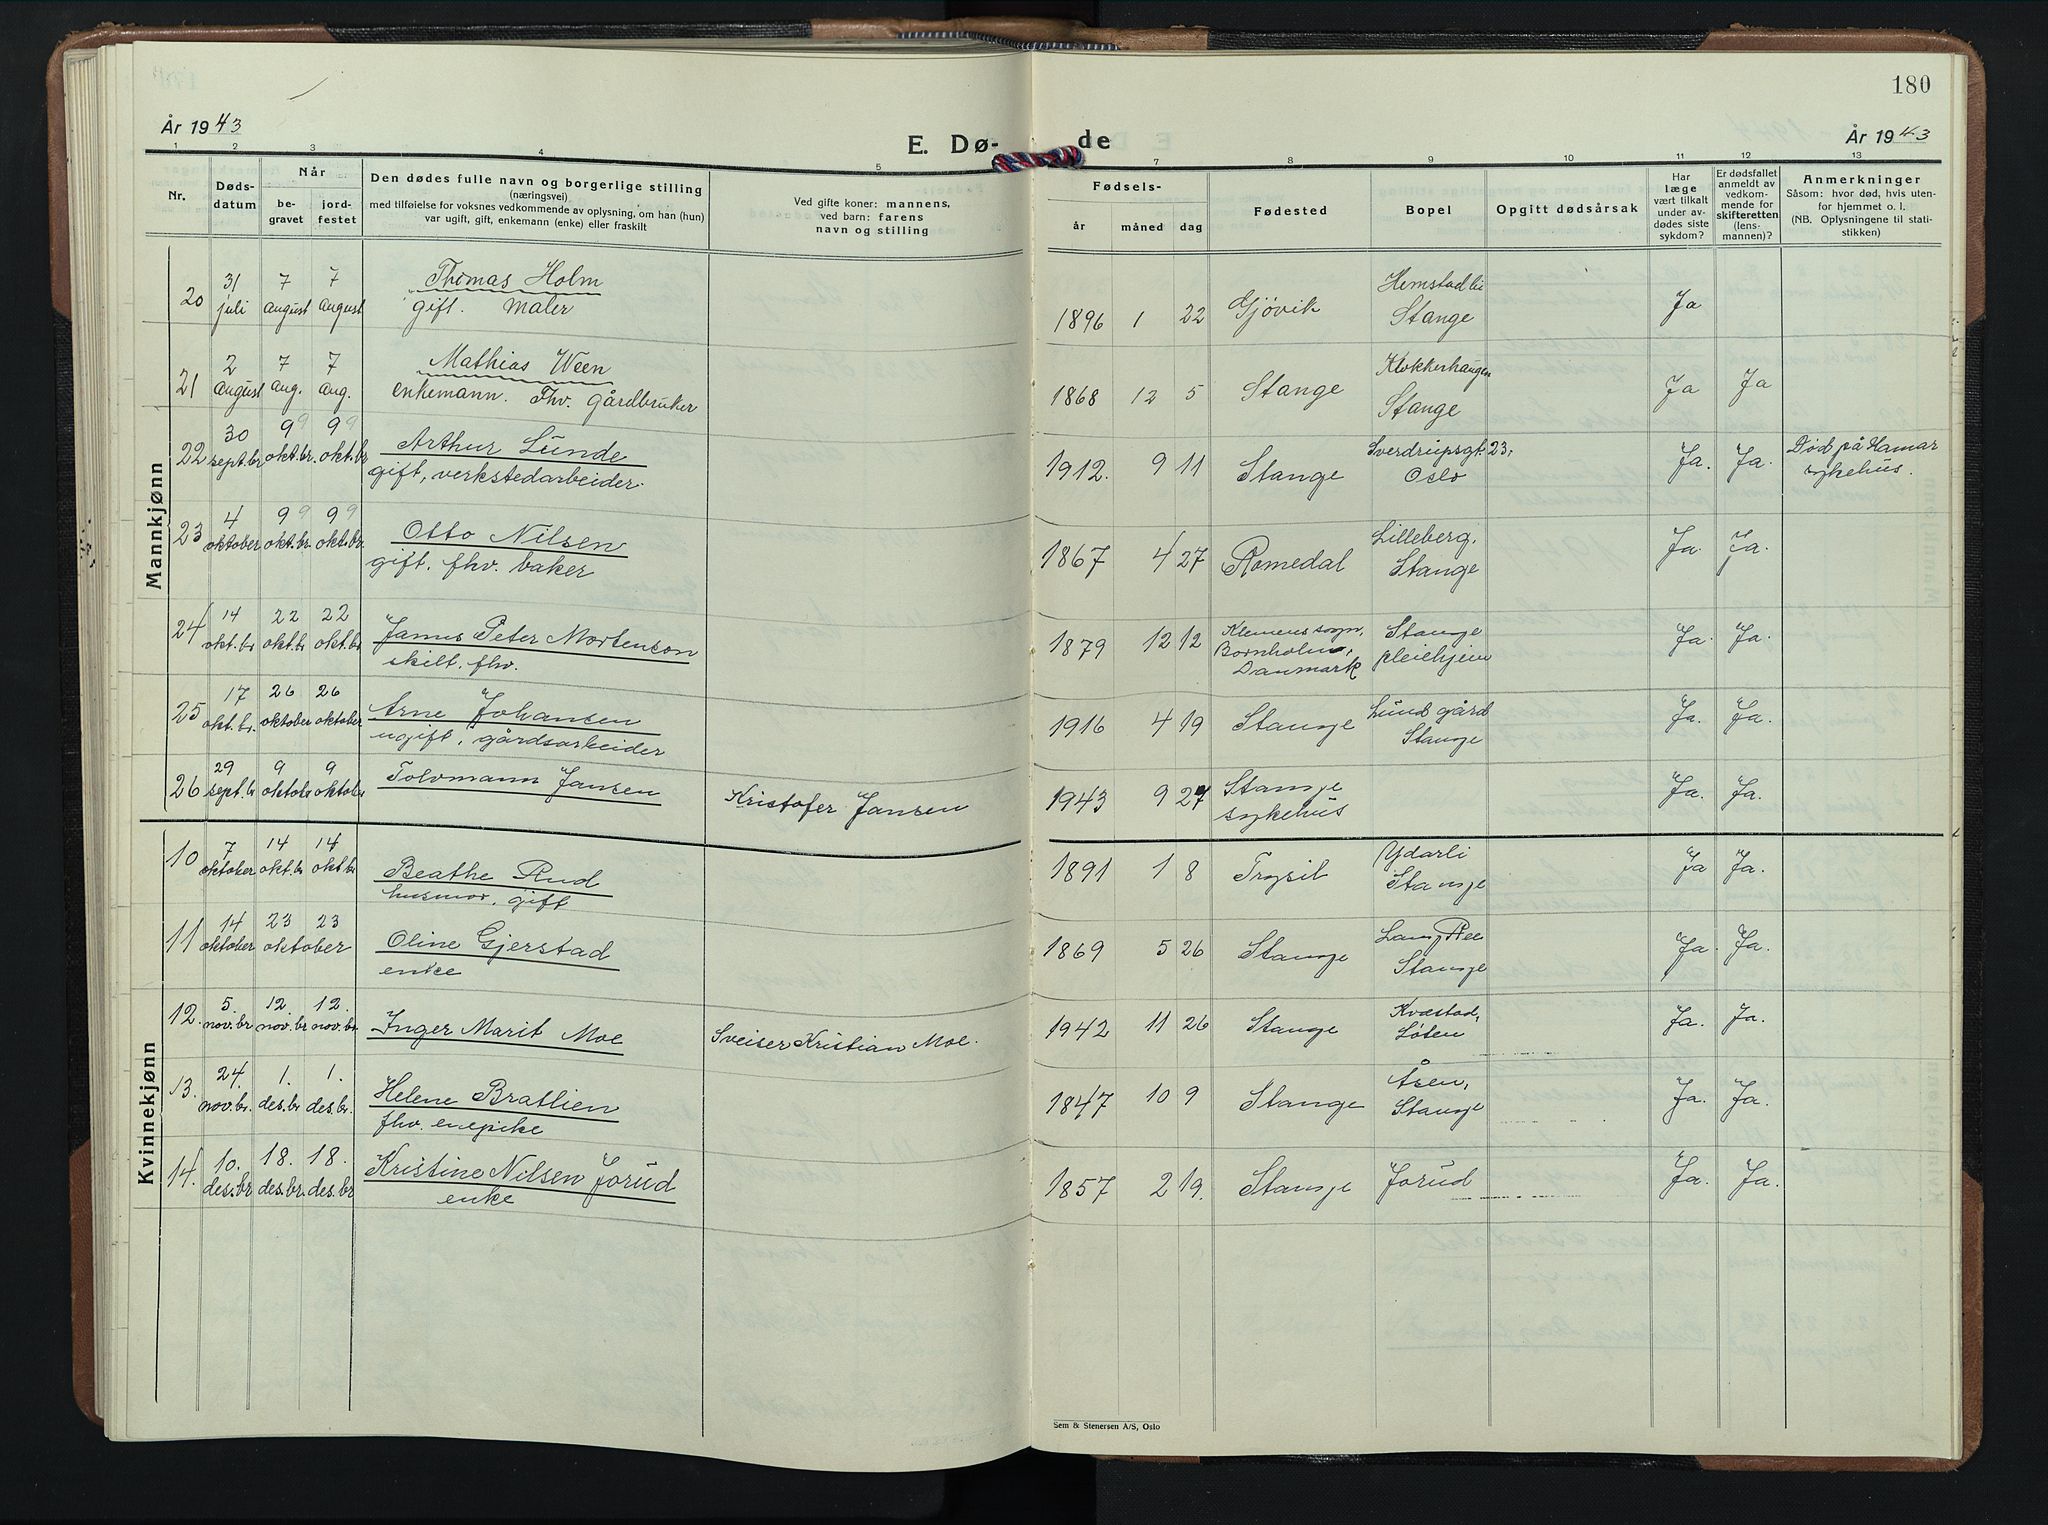 180
År 1943
E. Dø-
de
År 1943
1 2 3 4 5 7 8 9 10 11 12 13
Nr.
Døds-
datum
Når
be-
gravet
jord-
festet
Den dødes fulle navn og borgerlige stilling
(næringsvei)
med tilføielse for voksnes vedkommende av oplysning, om han (hun)
var ugift, gift, enkemann (enke) eller fraskilt
Ved gifte koner: mannens,
ved barn: farens
navn og stilling
Fødsels-
år måned dag
Fødested
Bopel
Opgitt dødsårsak
Har
læge
vært tilkalt
under av-
dødes siste
sykdom?
Er dødsfallet
anmeldt av
vedkom-
mende for
skifteretten
(lens-
mannen)?
Anmerkninger
Såsom: hvor død, hvis uten-
for hjemmet o. l.
(NB. Oplysningene til stati-
stikken)
Mannkjønn
20 31 juli 7 august 7 august Thomas Holm
gift. Maler
1896 1 22 Gjøvik Hemstadlie
Stange Ja
21 2 august 7 aug. 7 aug. Mathias Ween
enkemann. Fhv. gårdbruker
1868 12 5 Stange Klokkerhaugen
Stange Ja Ja
22 30 sept.br 9 okt.br. 9 okt.br Arthur Lunde
gift, verkstedarbeider.
1912. 9 11 Stange Sverdrupsgt. 23,
Oslo Ja. Ja. Død på Hamar
sykehus.
23 4 oktober 9 okt.br. 9 okt.br. Otto Nilsen
gift. fhv. baker
1867 4 27 Romedal Lilleberg,
Stange Ja. Ja.
24 14 okt.br 22 okt.br 22 okt.br Janus Peter Mortenson
skilt. fhv.
1879 12 12 Klemens sogn,
Bornholm,
Danmark
Stange
pleiehjem Ja. Ja.
25 17 okt.br. 26 oktober 26 oktober Arne Johansen
ugift, gårdsarbeider
1916 4 19 Stange Lund gård
Stange Ja. Ja.
26 29 sept.br 9 oktober 9 oktober Tolvmann Jansen
Kristofer Jansen
1943 9 27 Stange
sykehus Ja. Ja.
Kvinnekjønn
10 7 oktober 14 okt.br 14 okt.br Beathe Rud
husmor, gift
1891 1 8 Trysil Ydarli
Stange Ja Ja.
11 14 oktober 23 23 oktober Oline Gjerstad
enke
1869 5 26 Stange
Stange Ja. Ja.
12. 5. nov.br 12. nov.br 12. nov.br. Inger Marit Moe
Sveiser Kristian Moe.
1942 11 26 Stange Kvæstad,
Løten Ja. Ja.
13. 24. nov.br. 1. des.br 1. des.br. Helene Bratlien
fhv.
1847 10 9 Stange Åsen,
Stange Ja. Ja.
14. 10. des.br 18. des.br. 18. des.br Kristine Nilsen Jorud
enke
1857 2 19. Stange Jorud Ja. Ja.
Sem & Stenersen A/S, Oslo